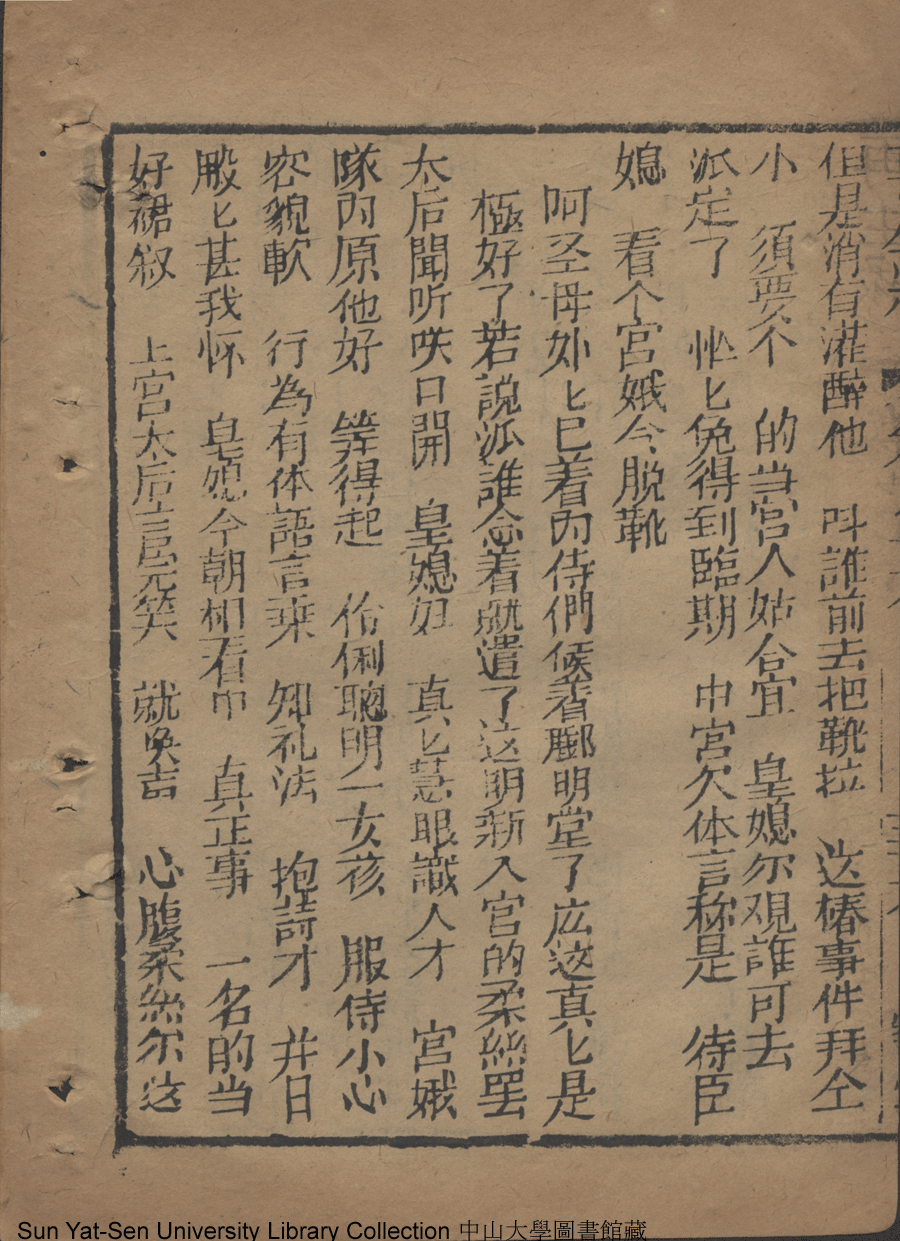 但是消有灌醉他　呌誰前去把靴拉　这椿事件拜仝
小　須要不　的当宮人姑合宜　皇媳尔观誰可去
派定了　怭匕免得到臨期　中宮欠体言称是　待臣
媳　看个宮娥今脱靴
呵圣母妙匕已着內侍們候着酈明堂了庅这真匕是
極好了若說派誰念着就遣了这明新入宮的柔絲罢
太后聞听咲口開　皇媳妇　真匕慧眼識人才　宮娥
隊內原他好　筭得起　伶俐聰明一女孩　服侍小心
容貌軟　行為有体語言乖　知礼法　抱詩才　并日
殿匕甚我怀　皇媳今朝相看中　真正事　一名的当
好裙釵　上宮太后言完笑　就喚吉　心腹柔絲尔这
Sun Yat-Sen University Library Collection 中山大學圖書館藏